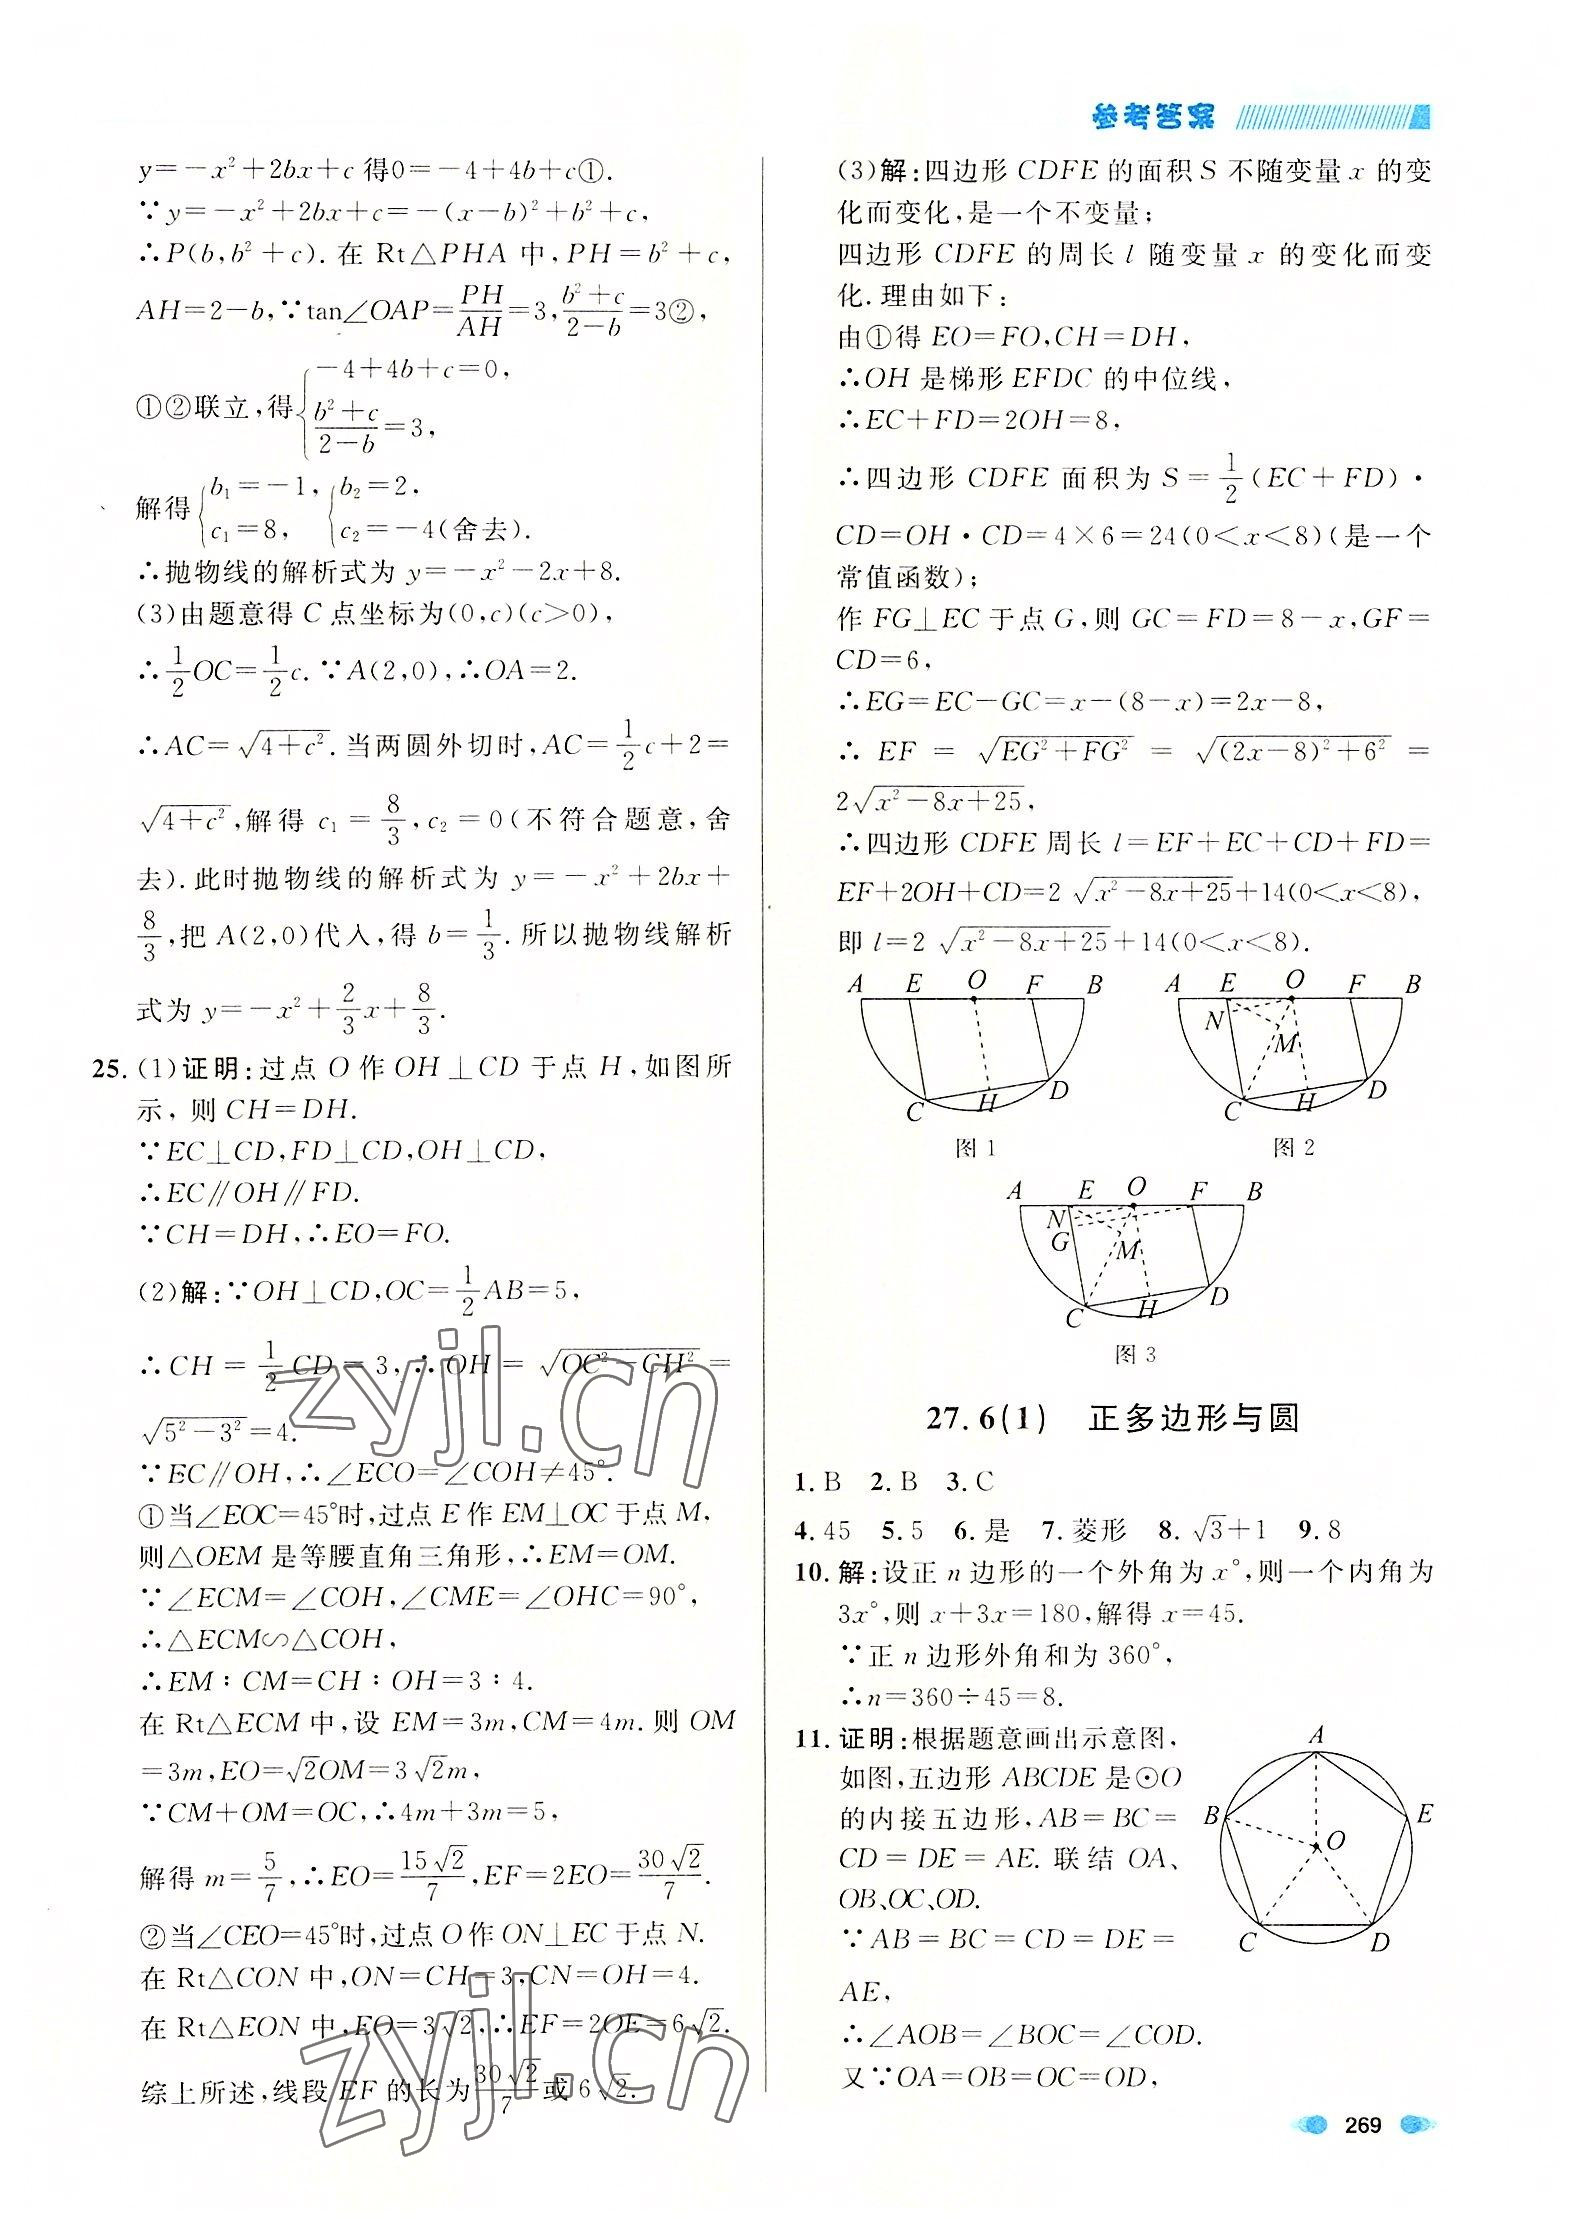 参考答案
y=-x²+2bx+c得0=-4+4b+c①.
∵y=-x²+2bx+c=-(x-b)²+b²+c,
∴P(b,b²+c).在Rt△PHA中,PH=b²+c,
AH=2-b,∵tan∠OAP=PH/AH=3,(b²+c)/(2-b)=3②,
①②联立,得{-4+4b+c=0,
(b²+c)/(2-b)=3,
解得{b₁=-1, {b₂=2,
c₁=8, c₂=-4(舍去).
∴抛物线的解析式为y=-x²-2x+8.
(3)由题意得C点坐标为(0,c)(c>0),
∴1/2OC=1/2c.∵A(2,0),∴OA=2.
∴AC=√(4+c²).当两圆外切时,AC=1/2c+2=
√(4+c²),解得c₁=8/3,c₂=0(不符合题意,舍
去).此时抛物线的解析式为y=-x²+2bx+
8/3,把A(2,0)代人,得b=1/3.所以抛物线解析
式为y=-x²+2/3x+8/3.
25.(1)证明:过点O作OH⊥CD于点H,如图所
示,则CH=DH.
∵EC⊥CD,FD⊥CD,OH⊥CD,
∴EC∥OH∥FD.
∵CH=DH,∴EO=FO.
(2)解:∵OH⊥CD,OC=1/2AB=5,
∴CH=1/2CD=3,∴OH=√(OC²-CH²)=
√(5²-3²)=4.
∵EC∥OH,∴∠ECO=∠COH≠45°.
①当∠EOC=45°时,过点E作EM⊥OC于点M,
则△OEM是等腰直角三角形,∴EM=OM.
∵∠ECM=∠COH,∠CME=∠OHC=90°,
∴△ECM∽△COH,
∴EM∶CM=CH∶OH=3∶4.
在Rt△ECM中,设EM=3m,CM=4m.则OM
=3m,EO=√2OM=3√2m,
∵CM+OM=OC,∴4m+3m=5,
解得m=5/7,∴EO=15√2/7,EF=2EO=30√2/7.
②当∠CEO=45°时,过点O作ON⊥EC于点N.
在Rt△CON中,ON=CH=3,CN=OH=4.
在Rt△EON中,EO=3√2,∴EF=2OE=6√2.
综上所述,线段EF的长为30√2/7或6√2.
(3)解:四边形CDFE的面积S不随变量x的变
化而变化,是一个不变量;
四边形CDFE的周长l随变量x的变化而变
化.理由如下:
由①得EO=FO,CH=DH,
∴OH是梯形EFDC的中位线,
∴EC+FD=2OH=8,
∴四边形CDFE面积为S=1/2(EC+FD)·
CD=OH·CD=4×6=24(0<x<8)(是一个
常值函数);
作FG⊥EC于点G,则GC=FD=8-x,GF=
CD=6,
∴EG=EC-GC=x-(8-x)=2x-8,
∴EF=√(EG²+FG²)=√((2x-8)²+6²)=
2√(x²-8x+25),
∴四边形CDFE周长l=EF+EC+CD+FD=
EF+2OH+CD=2√(x²-8x+25)+14(0<x<8),
即l=2√(x²-8x+25)+14(0<x<8).
A E O F B
C H D
图1
A E O F B
N
M
C H D
图2
A E O F B
N
G M
C H D
图3
27.6(1) 正多边形与圆
1.B 2.B 3.C
4.45 5.5 6.是 7.菱形 8.√3+1 9.8
10.解:设正n边形的一个外角为x°,则一个内角为
3x°,则x+3x=180,解得x=45.
∵正n边形外角和为360°,
∴n=360÷45=8.
11.证明:根据题意画出示意图,
如图,五边形ABCDE是⊙O
的内接五边形,AB=BC=
CD=DE=AE.联结OA、
OB、OC、OD.
∵AB=BC=CD=DE=
AE,
∴∠AOB=∠BOC=∠COD.
又∵OA=OB=OC=OD,
A
B E
O
C D
zyjl.cn
zyjl.cn
269